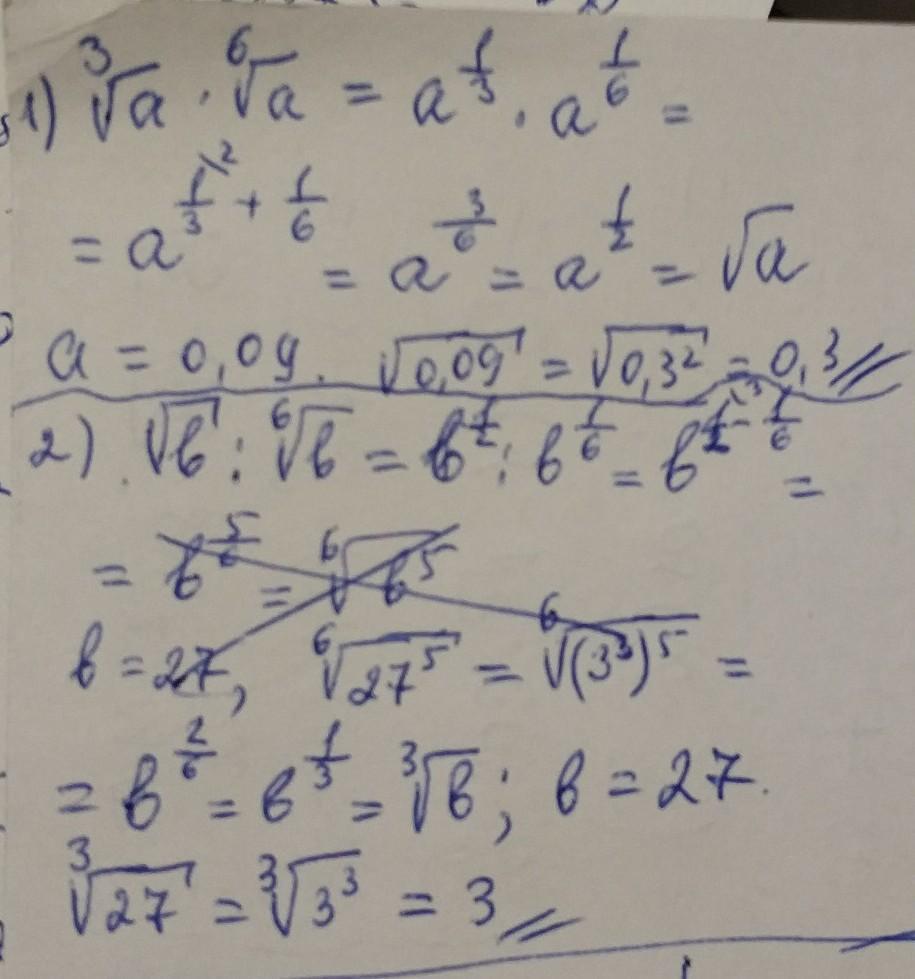 1) ∛a · ⁶√a = a^(1/3) · a^(1/6) =
= a^(1/3 + 1/6) = a^(3/6) = a^(1/2) = √a
a = 0,09. √0,09 = √0,3² = 0,3
2) √b : ⁶√b = b^(1/2) : b^(1/6) = b^(1/2 - 1/6) =
= b^(5/6) = ⁶√b⁵
b = 27, ⁶√27⁵ = ⁶√(3³)⁵ =
= b^(2/6) = b^(1/3) = ∛b; b = 27.
∛27 = ∛3³ = 3